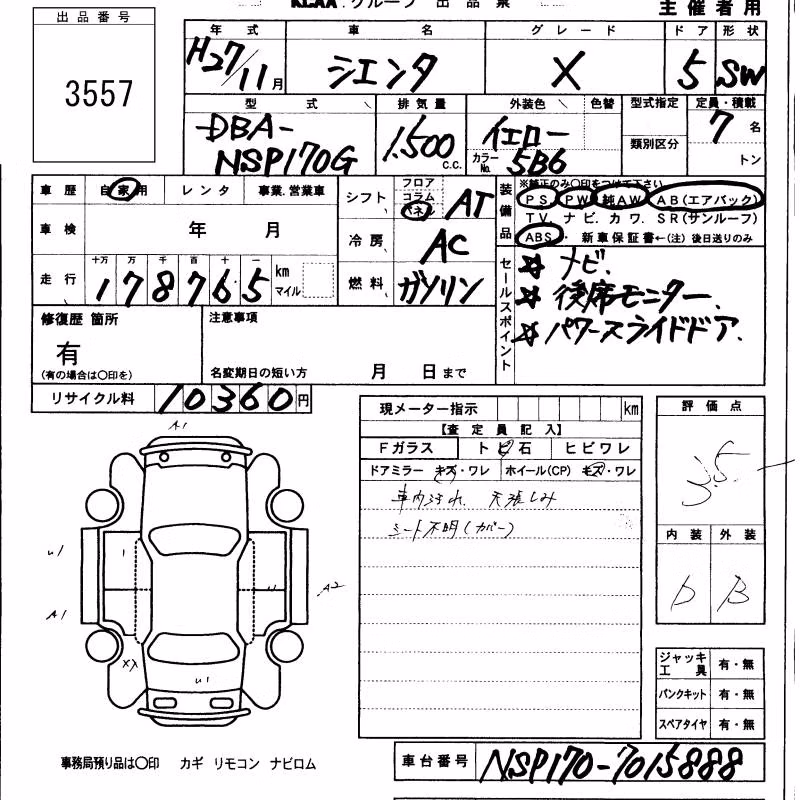 KCAA グループ 出品票 主催者用
出品番号
3557
年式 車名 グレード ドア 形状
H27/11月 シエンタ X 5 SW
型式 排気量 外装色 色替 型式指定 定員・積載
DBA-NSP170G 1.500 c.c. イエロー カラーNo. 5B6 類別区分 7名 トン
車歴 自家用 レンタ 事業.営業車
車検 年 月
走行 十万 万 千 百 十 一 km マイル
178765
シフト フロア コラム パネル AT
冷房 AC
燃料 ガソリン
装備品 ※純正のみ○印をつけて下さい
PS PW 純AW AB(エアバック)
TV. ナビ. カワ. SR(サンルーフ)
ABS ・ 新車保証書←(注) 後日送りのみ
セールスポイント
☆ ナビ.
☆ 後席モニター.
☆ パワースライドドア.
修復歴 箇所
有
(有の場合は○印を)
注意事項
名変期日の短い方 月 日まで
リサイクル料 10360円
現メーター指示 km
【査定員記入】
Fガラス トビ石 ヒビワレ
ドアミラー キズ・ワレ ホイール(CP) キズ・ワレ
車内汚れ 天張しみ
シート不明(カバー)
評価点
3.5
内装 外装
D B
ジャッキ 工具 有・無
パンクキット 有・無
スペアタイヤ 有・無
A1
U1
A1
A2
XX
U1
事務局預り品は○印 カギ リモコン ナビロム
車台番号 NSP170-7015888